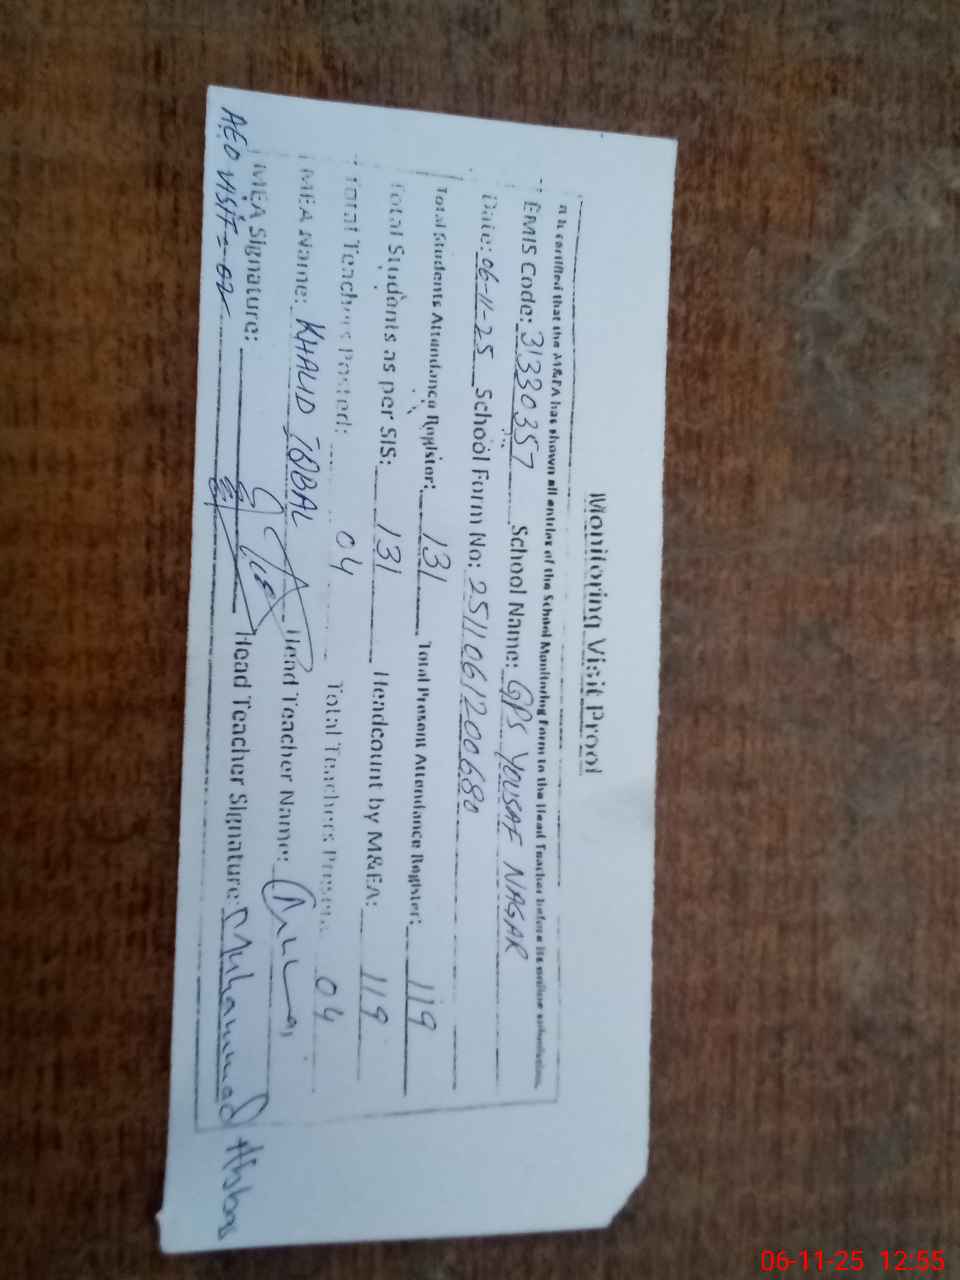 Monitoring Visit Proof
It is certified that the M&EA has shown all entries of the School Monitoring Form to the Head Teacher before its online submission.
EMIS Code: 31330357 School Name: GPS YOUSAF NAGAR
Date: 06-11-25 School Form No: 2511061200680
Total Students Attendance Register: 131 Total Present Attendance Register: 119
Total Students as per SIS: 131 Headcount by M&EA: 119
Total Teachers Posted: 04 Total Teachers Present 04
MEA Name: KHALID IQBAL Head Teacher Name:
MEA Signature: Head Teacher Signature: Muhammad
AEO VISIT = 02
06-11-25 12:55